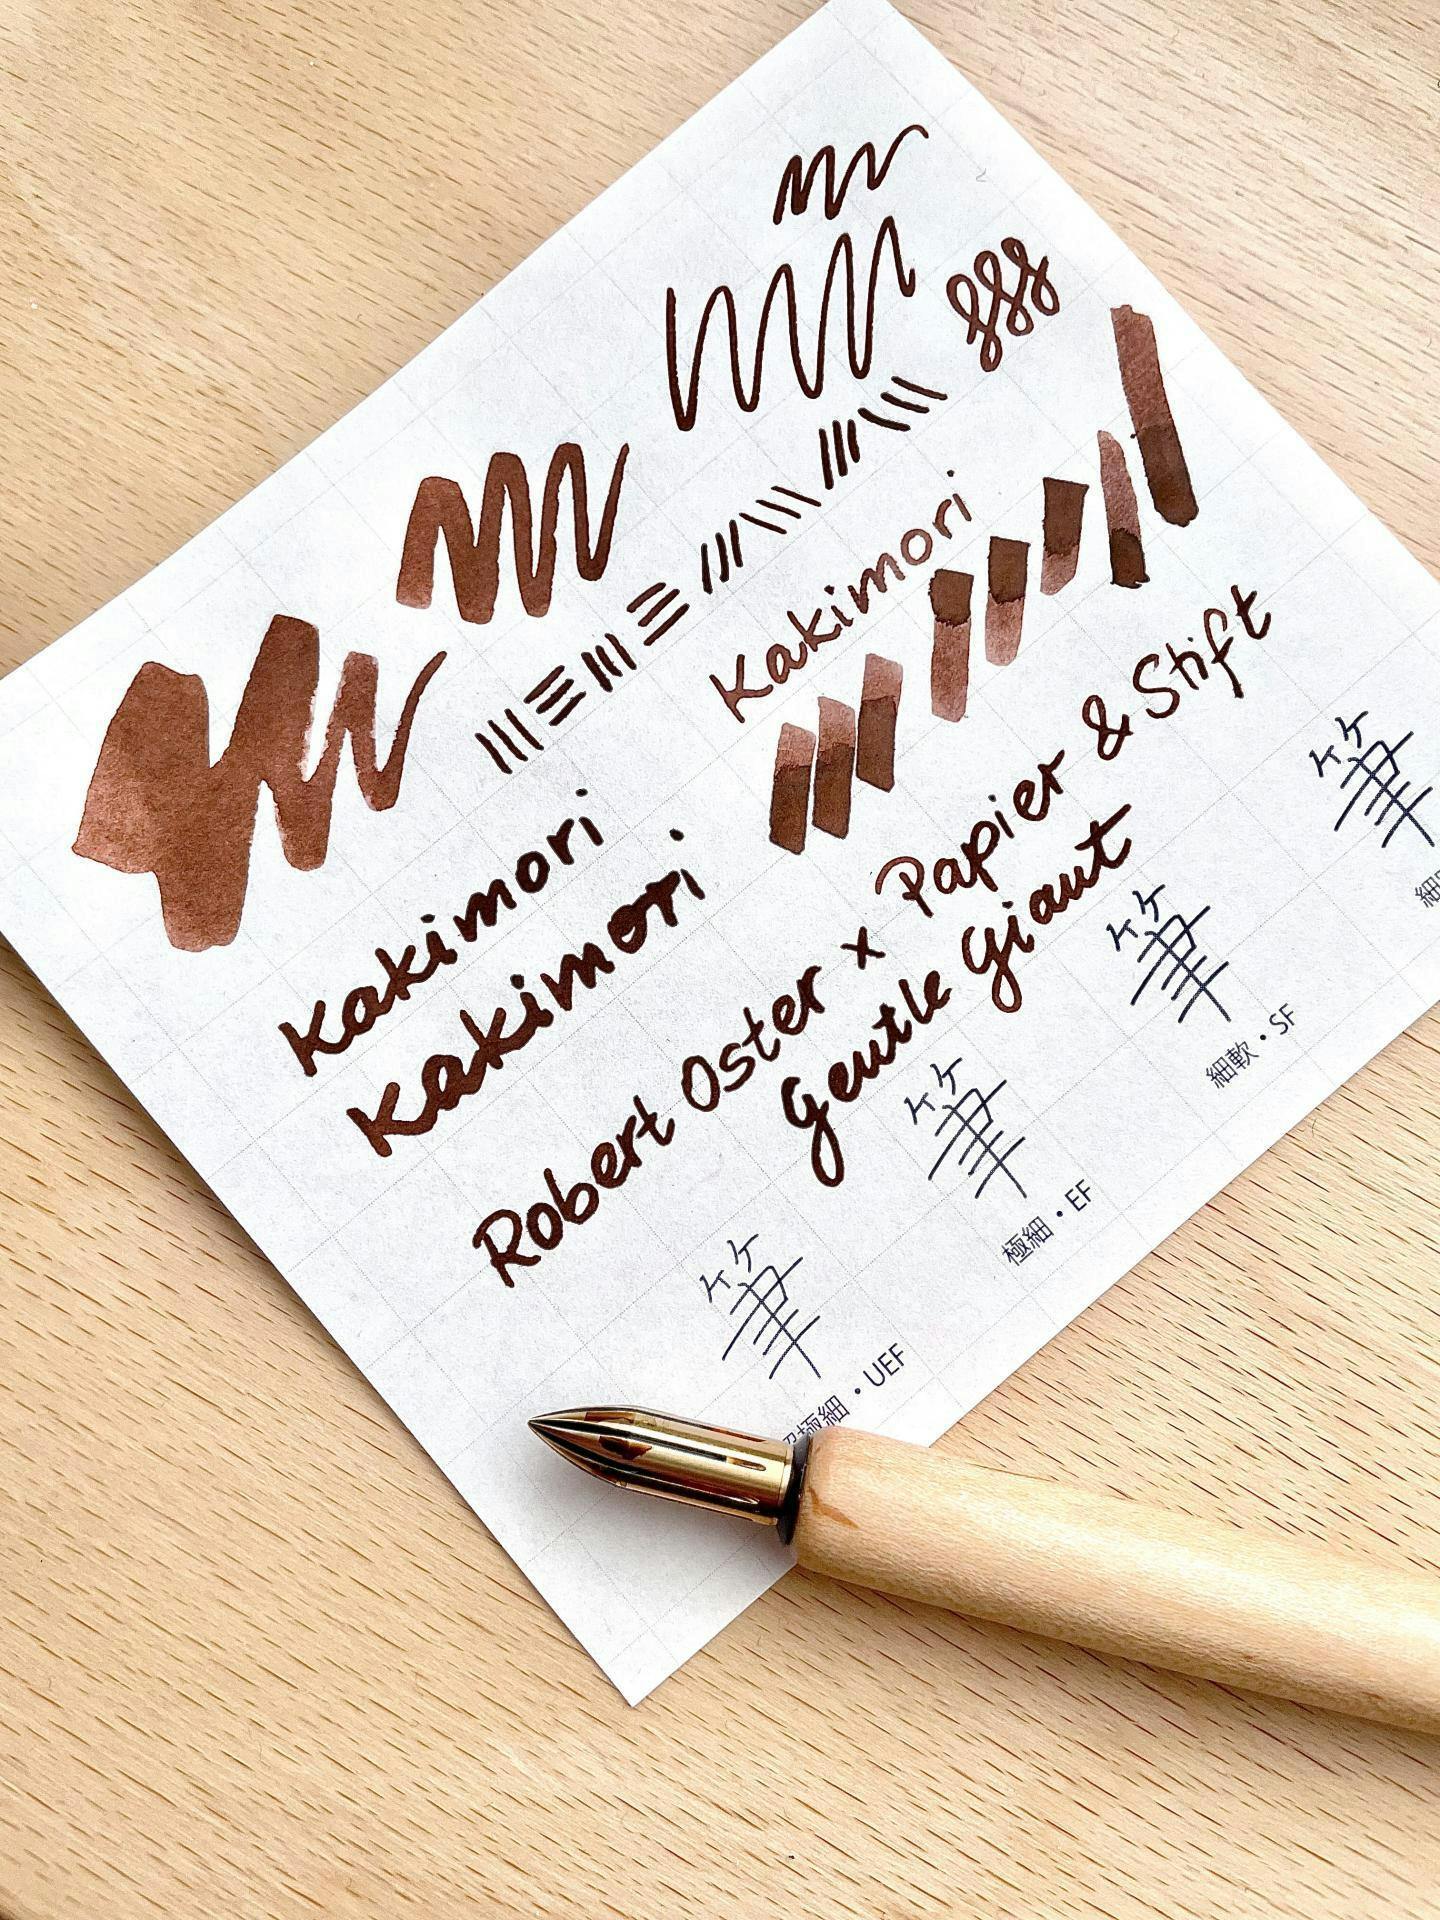 Kakimori
Kakimori
Kakimori
Robert Oster x Papier & Stift
Gentle Giant
筆
筆
筆
筆
極細・UEF
極細・EF
細軟・SF
細